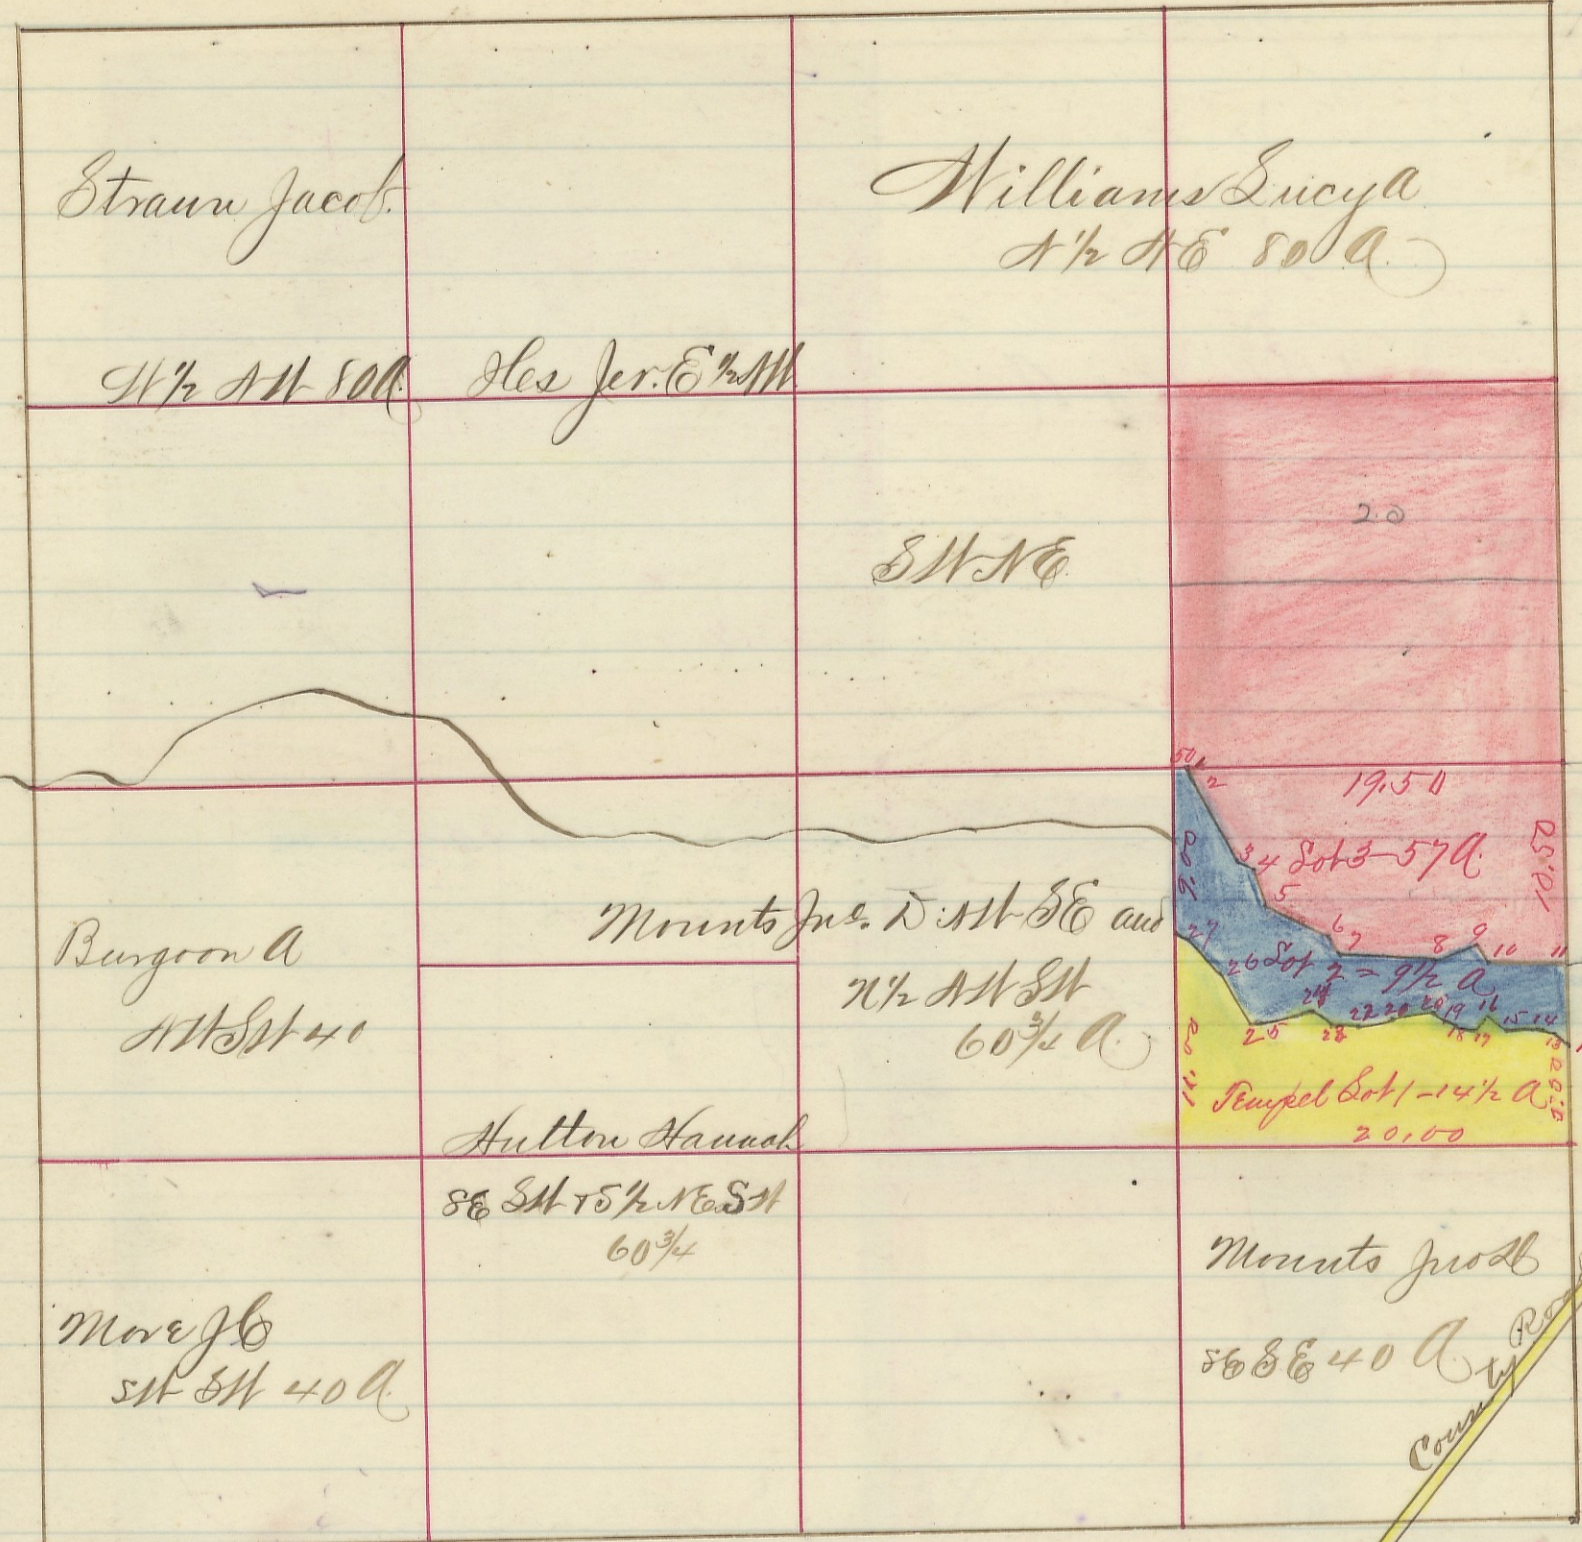 Strawn Jacob.
W ½ NW 80 A.
Iles Jer. E ½ NW
Williams Lucy A
N ½ NE 80 A.
SW NE.
20
50
1
2
19.50
3
4
Lot 3 - 57 A.
5
6
7
8
9
10
11
9.00
27
26
Lot 2 = 9½ A
24
25
22
20
19
16
15
14
28
18
17
13
11.00
Tempel Lot 1 - 14½ A
20.00
Burgoon A
NW SW 40
Mounts Jno. D. NW SE and
N ½ NW SW
60 ¾ A.
Hutton Hannah
SE SW & S ½ NE SW
60 ¾
More J C
SW SW 40 A.
Mounts Jno D
SE SE 40 A
County Roa